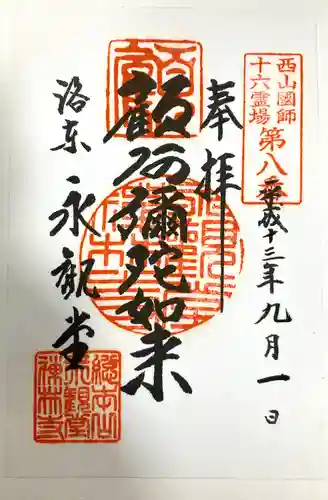 西山國師
十六霊場 第八番
平成十三年九月一日
奉拝
顧阿彌陀如来
洛东 永觀堂
總本山
永觀堂
禅林寺